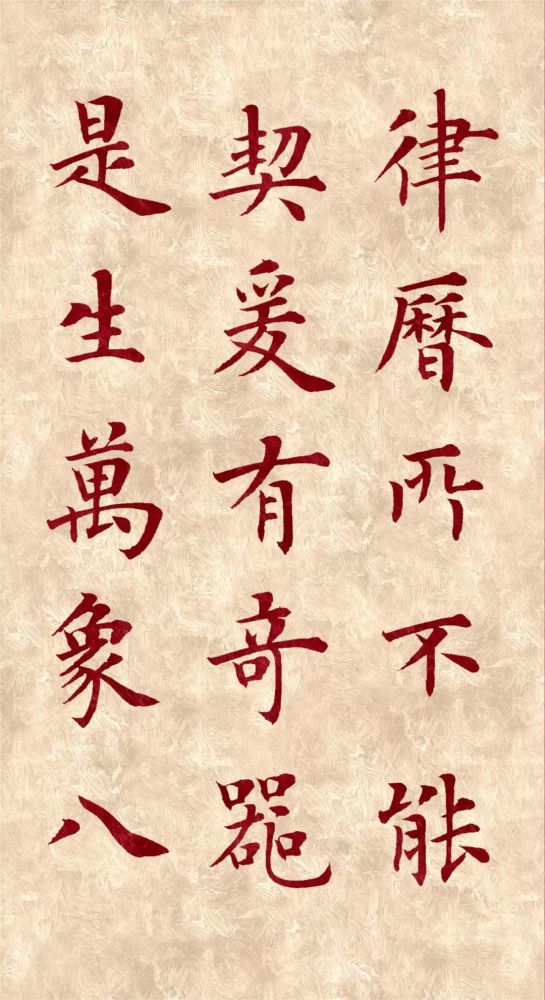 律曆所不能
契爰有奇器
是生萬象八